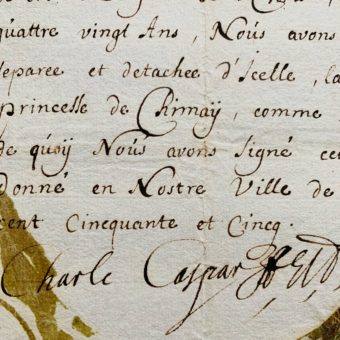 quattre vingt Ans, Nous avons
separee et detachee d'Icelle, la
princesse de Chimaÿ, comme
de quoÿ Nous avons signé
donné en Nostre Ville de
cent Cincquante et Cincq.
Charle Caspar